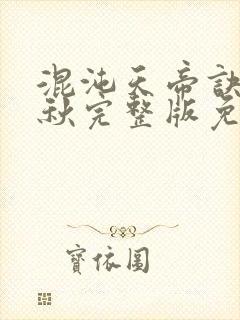 混沌天帝訣
秋完整版免
寶依圖